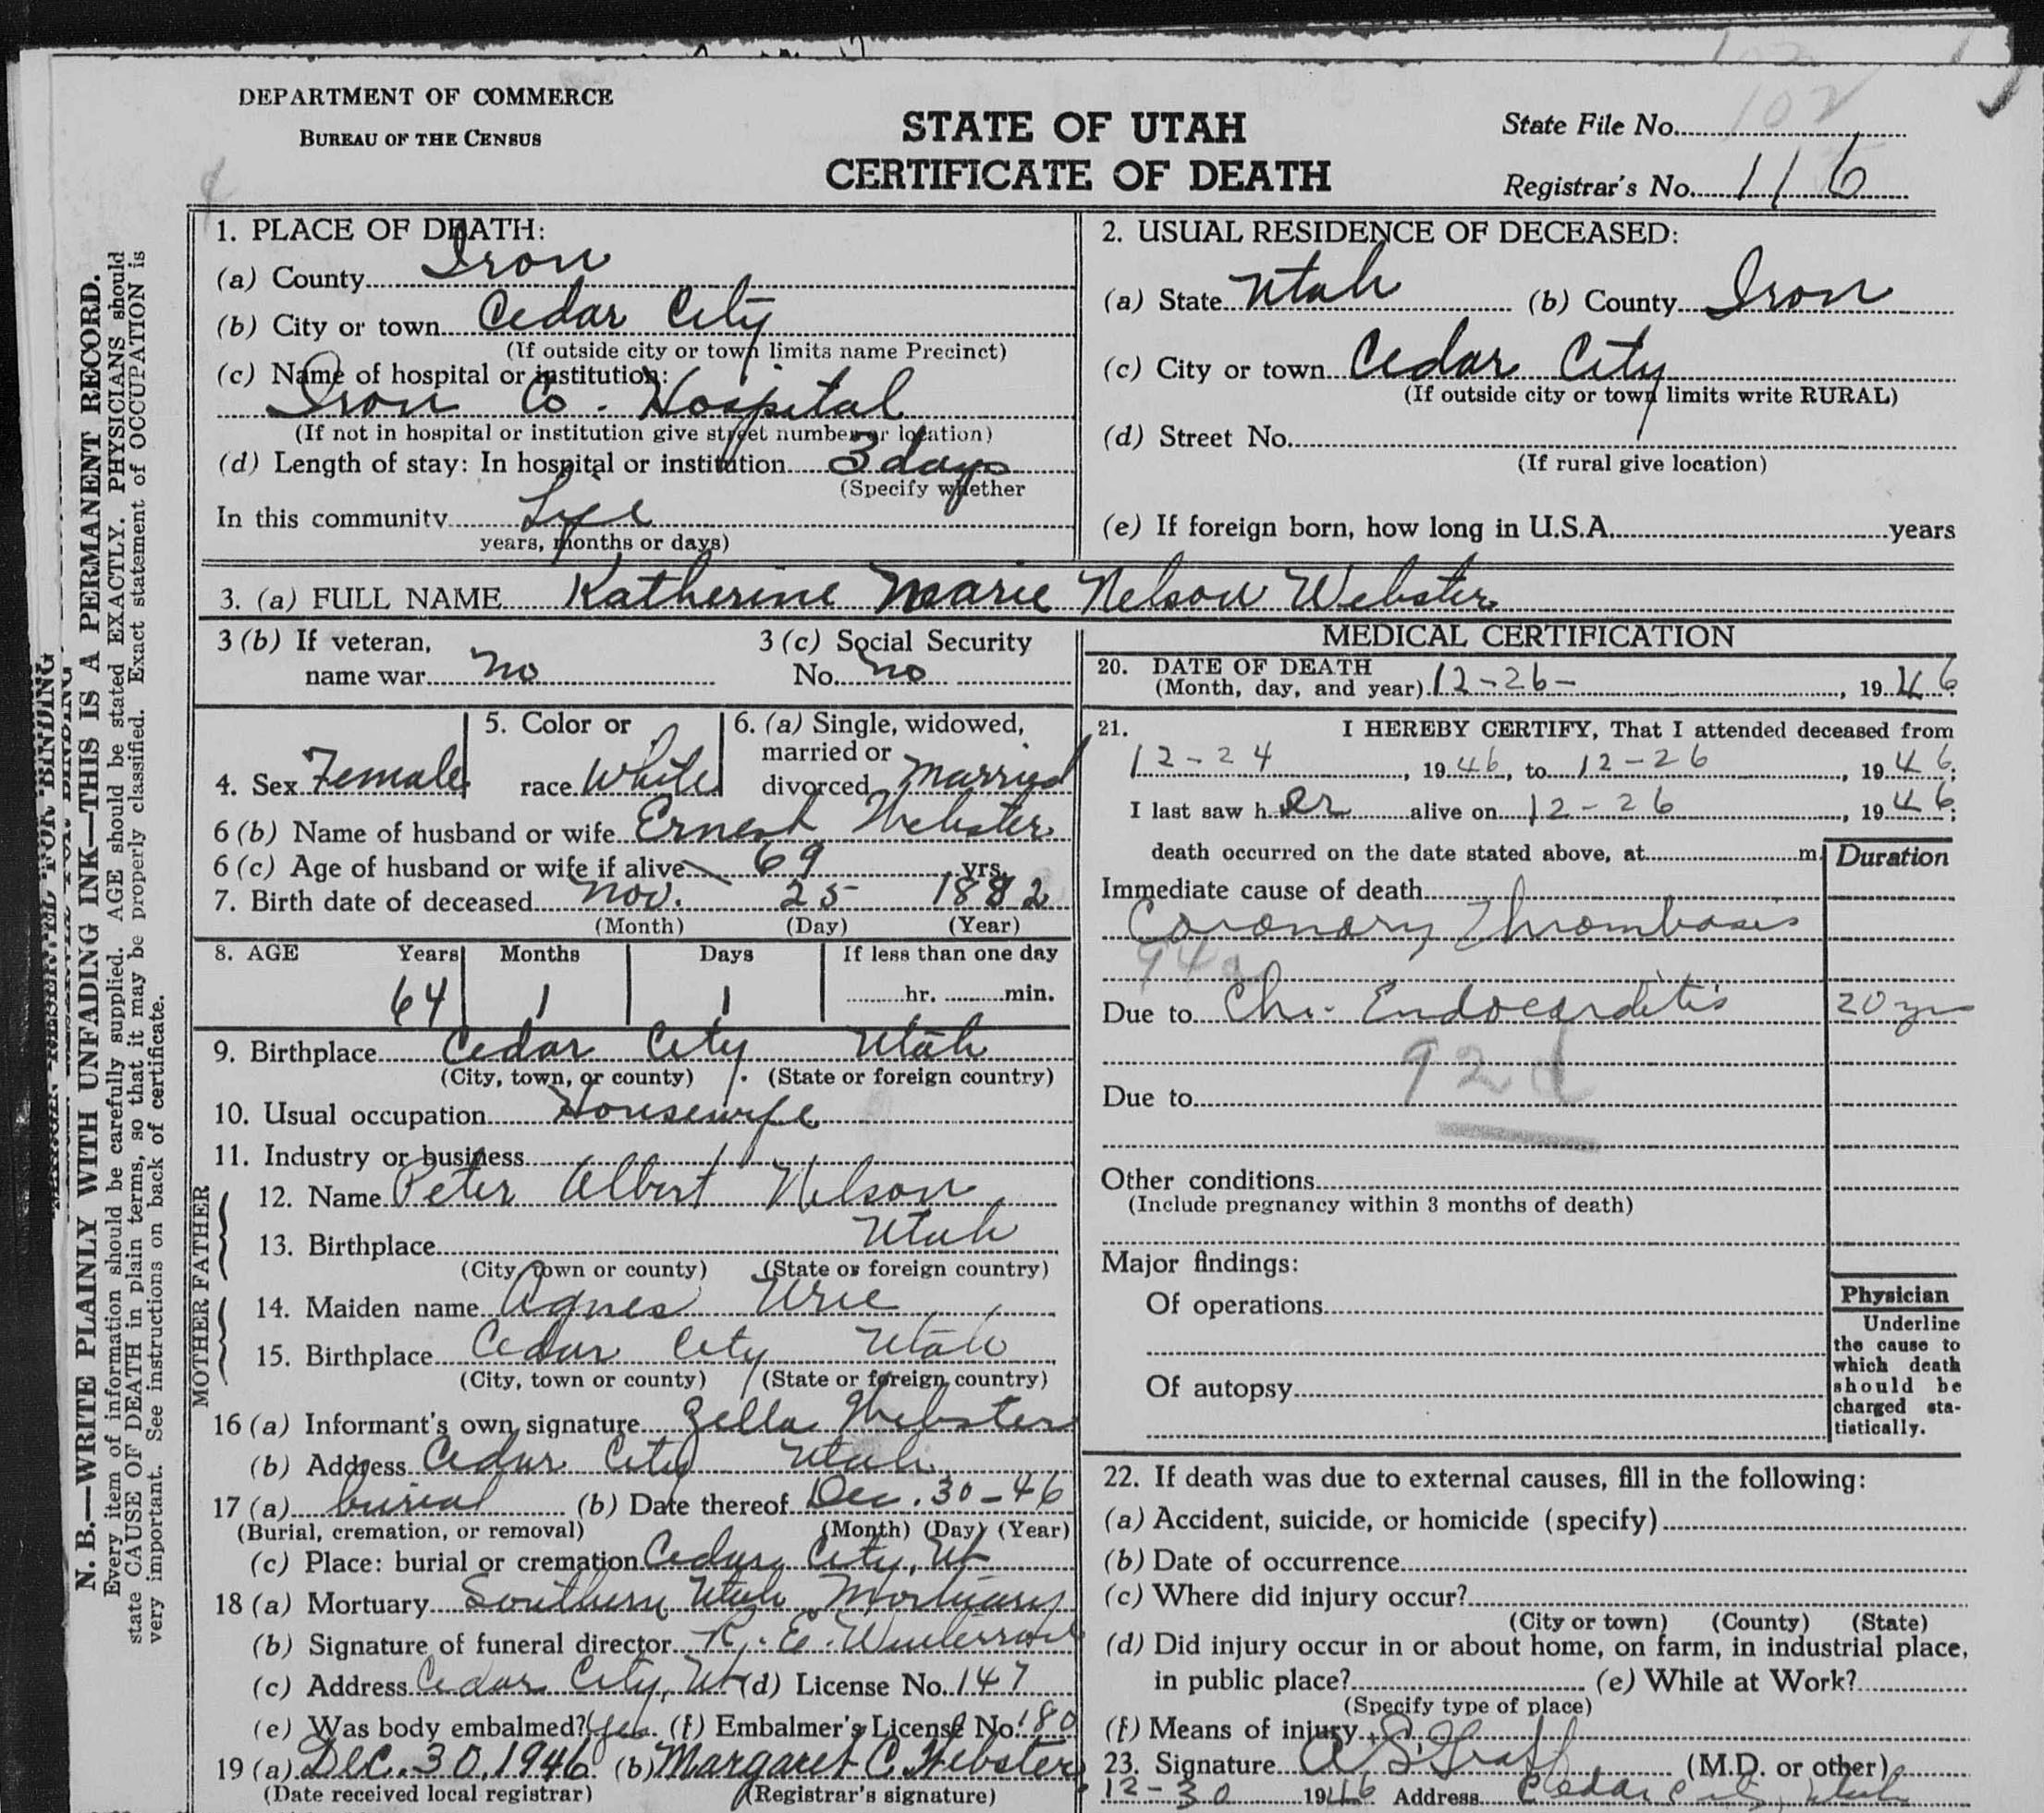 DEPARTMENT OF COMMERCE
BUREAU OF THE CENSUS
STATE OF UTAH
CERTIFICATE OF DEATH
State File No. 102
Registrar's No. 116
N. B.—WRITE PLAINLY WITH UNFADING INK—THIS IS A PERMANENT RECORD.
Every item of information should be carefully supplied. AGE should be stated EXACTLY. PHYSICIANS should
state CAUSE OF DEATH in plain terms, so that it may be properly classified. Exact statement of OCCUPATION is
very important. See instructions on back of certificate.
1. PLACE OF DEATH:
(a) County Iron
(b) City or town Cedar City
(If outside city or town limits name Precinct)
(c) Name of hospital or institution:
Iron Co. Hospital
(If not in hospital or institution give street number or location)
(d) Length of stay: In hospital or institution 3 days
(Specify whether
In this community Life
years, months or days)
2. USUAL RESIDENCE OF DECEASED:
(a) State Utah (b) County Iron
(c) City or town Cedar City
(If outside city or town limits write RURAL)
(d) Street No.
(If rural give location)
(e) If foreign born, how long in U.S.A. years
3. (a) FULL NAME Katherine Marie Nelson Webster
3 (b) If veteran, name war no
3 (c) Social Security No. no
4. Sex Female
5. Color or race White
6. (a) Single, widowed, married or divorced Married
6 (b) Name of husband or wife Ernest Webster
6 (c) Age of husband or wife if alive 69 yrs.
7. Birth date of deceased Nov. 25 1882
(Month) (Day) (Year)
8. AGE Years Months Days If less than one day
64 1 1 hr. min.
9. Birthplace Cedar City Utah
(City, town, or county) (State or foreign country)
10. Usual occupation Housewife
11. Industry or business
FATHER
12. Name Peter Albert Nelson
13. Birthplace Utah
(City, town or county) (State or foreign country)
MOTHER
14. Maiden name Agnes Urie
15. Birthplace Cedar City Utah
(City, town or county) (State or foreign country)
16 (a) Informant's own signature Zella Webster
(b) Address Cedar City Utah
17 (a) burial (b) Date thereof Dec. 30-46
(Burial, cremation, or removal) (Month) (Day) (Year)
(c) Place: burial or cremation Cedar City, Ut
18 (a) Mortuary Southern Utah Mortuary
(b) Signature of funeral director R. E.
(c) Address Cedar City, Ut (d) License No. 147
(e) Was body embalmed? Yes (f) Embalmer's License No. 180
19 (a) Dec. 30, 1946 (b) Margaret C. Webster
(Date received local registrar) (Registrar's signature)
MEDICAL CERTIFICATION
20. DATE OF DEATH
(Month, day, and year) 12-26-, 1946
21. I HEREBY CERTIFY, That I attended deceased from
12-24, 1946, to 12-26, 1946;
I last saw her alive on 12-26, 1946;
death occurred on the date stated above, at m.
Duration
Immediate cause of death
Coronary Thrombosis
94a
Due to Chr. Endocarditis 20 yr
92d
Due to
Other conditions
(Include pregnancy within 3 months of death)
Major findings:
Of operations
Of autopsy
Physician
Underline
the cause to
which death
should be
charged sta-
tistically.
22. If death was due to external causes, fill in the following:
(a) Accident, suicide, or homicide (specify)
(b) Date of occurrence
(c) Where did injury occur?
(City or town) (County) (State)
(d) Did injury occur in or about home, on farm, in industrial place,
in public place? (e) While at Work?
(Specify type of place)
(f) Means of injury
23. Signature (M.D. or other)
12-30 1946 Address Cedar City, Utah